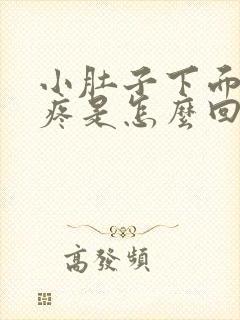 小肚子下面
疼是怎麼回
高發頻